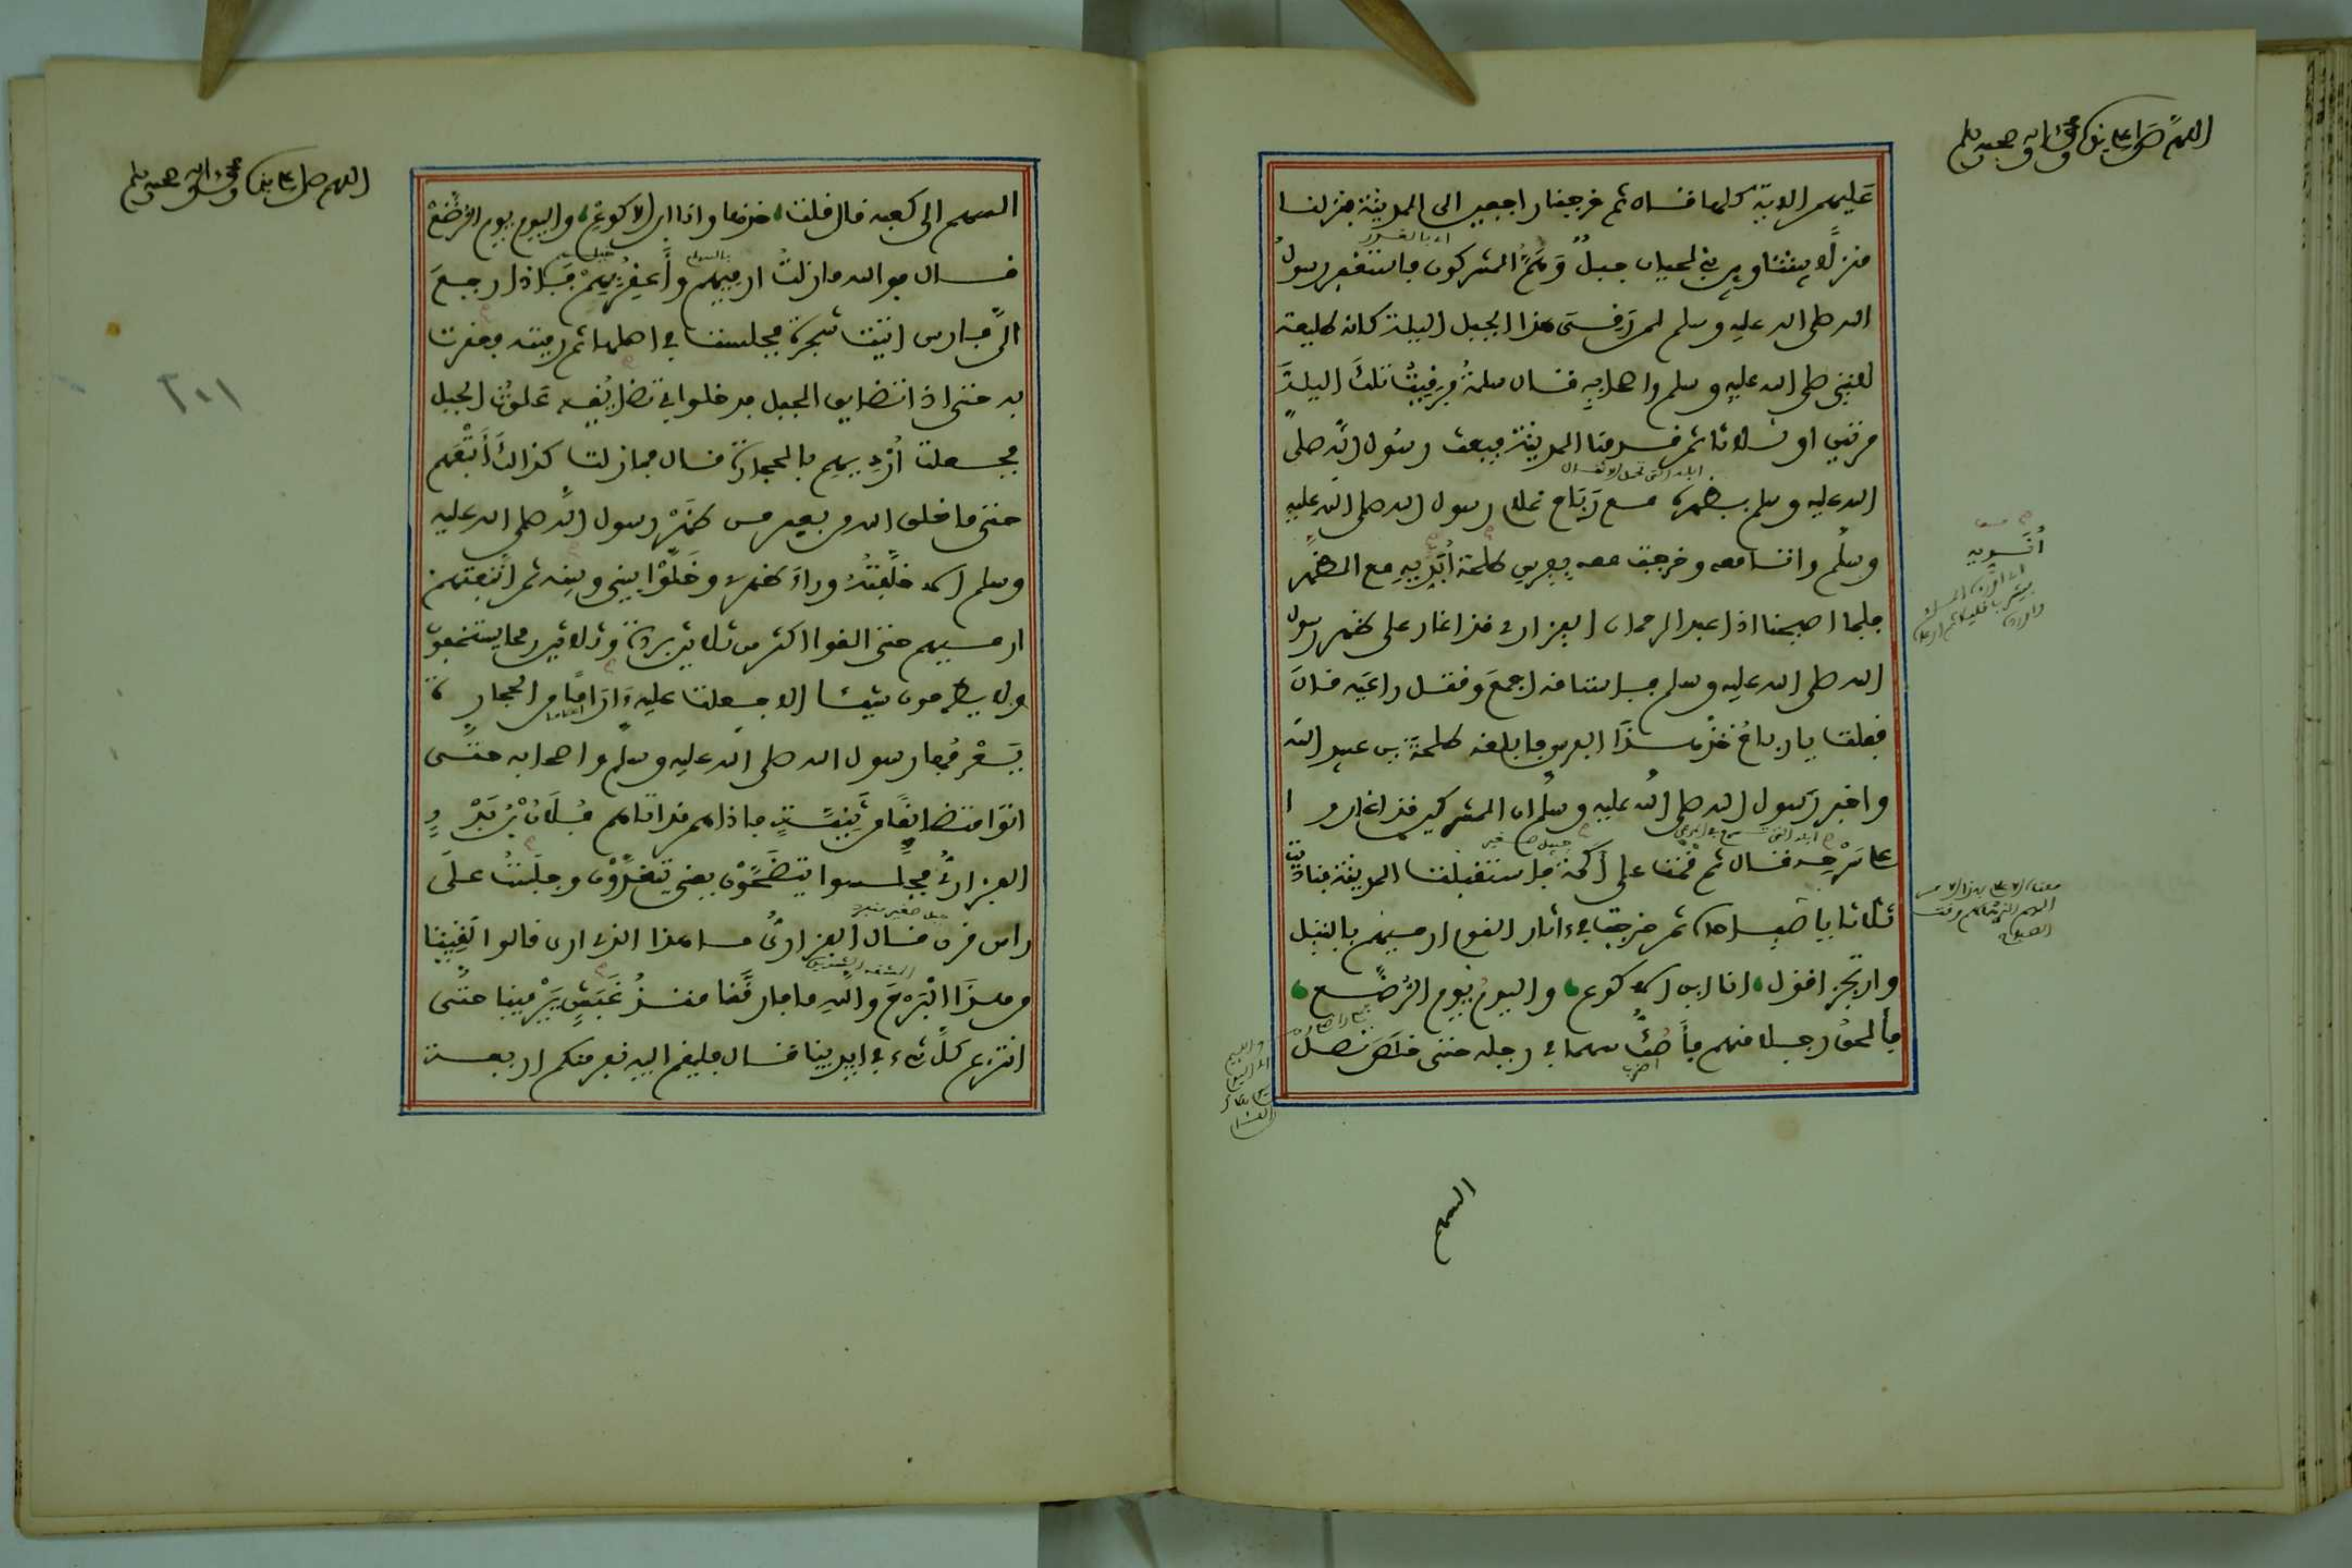 اللهم صل على نبيك محمد وءاله وصحبه وسلم
عَليهم الاية كلها قال ثم خرجنا راجعين الى المدينة فنزلنا
منزلا بيننا وبين بني لحيان جبلٌ وَهُمُ المشركون فاستغفر رسولُ
الله صلى الله عليه وسلم لمن رَقِىَ هذا الجبل الليلة كانه طليعة
للنبي صلى الله عليه وسلم واصحابه قال سلمةُ فرقيتُ تلكَ الليلةَ
مرتين او ثلاثا ثم قدمنا المدينة فبعث رسُول الله صلى
الله عليه وسلم بظهره مع رَبَاح غلام رسول الله صلى الله عليه
وسلم وانا معه وخرجت معه بفرس طلحة أُنَدِّيهِ مع الظهر
فلما اصبحنا اذا عبد الرحمان الفزارى قد اغار على ظهر رسول
الله صلى الله عليه وسلم فاستاقه اجمعَ وقتل راعيَه قالَ
فقلت يا رباحُ خذ هذَا الفرس فابلغه طلحةَ بن عبيد الله
واخبر رَسول الله صلى الله عليه وسلم ان المشركين قد اغاروا
على سَرْحِه قال ثم قمت على أكمَة فاستقبلت المدينة فناديت
ثلاثا يا صباحاه ثم خرجت في ءاثار القوم ارميهم بالنبل
وارتجز اقول، انا ابن الاكوع، واليومُ يوم الرُّضَّع،
فألحقُ رجلا منهم فأَصُكُّ سهما في رجله حتى خلَصَ نصلُ
السهم
اللهم صل على نبيك محمد وءاله وصحبه وسلم
السهم الى كعبه قال قلت، خذها وانا ابن الاكوع، واليوم يوم الرُّضَّعْ
قال فوالله ما زلتُ ارميهم وأَعقِرُ بِهِمْ فَإذا رجعَ
الىَّ فارس اتيت شجرة فجلست في اصلها ثم رميته فعقرت
به حتى اذا تضايق الجبل فدخلوا في تضايُقِه عَلوتُ الجبل
فجعلت أُرْدِيهِم بالحجارة قال فما زلت كذلك أَتْبَعُهم
حتى ما خلق الله من بعير من ظَهْرِ رسول الله صلى الله عليه
وسلم الا خلَّفتُهُ وراءَ ظهرى وخَلَّوْا بيني وبينه ثم اتَّبعتهم
ارميهم حتى القوا اكثر من ثلاثين بردة وثلاثين رمحا يستخفون
ولا يطرحون شيئا الا جعلت عليه ءارَامًا من الحجارة
يَعْرِفُها رسول الله صلى الله عليه وسلم واصحابه حتى
اتوا متضايقًا من ثَنِيَّةٍ فاذا هم قد اتاهم فُلَانُ بْنُ بَدْرٍ
الفزارىُّ فجلسوا يتضَحَّوْن يعنى يتغدَّوْن وجلَستُ علَى
راس قرن قال الفزارىُّ ما هذا الذى ارى قالوا لَقِينا
من هذَا البَرْحَ واللهِ ما فارقَنا منذُ غَبَشٍ يَرْمينا حتى
انتزع كلَّ شىء في ايدينا قال فليقم اليه نفر منكم اربعة
٢٠١